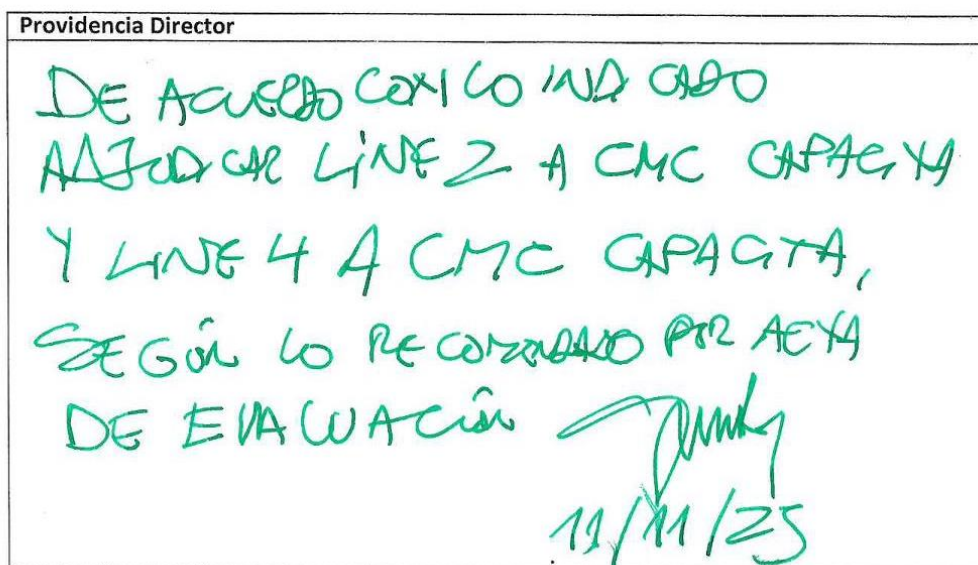 Providencia Director
DE ACUERDO CON LO INDICADO
ADJUDICAR LÍNE 2 A CMC CAPACITA
Y LINE 4 A CMC CAPACITA,
SEGÚN LO RECOMENDADO POR ACTA
DE EVALUACIÓN
11/11/25